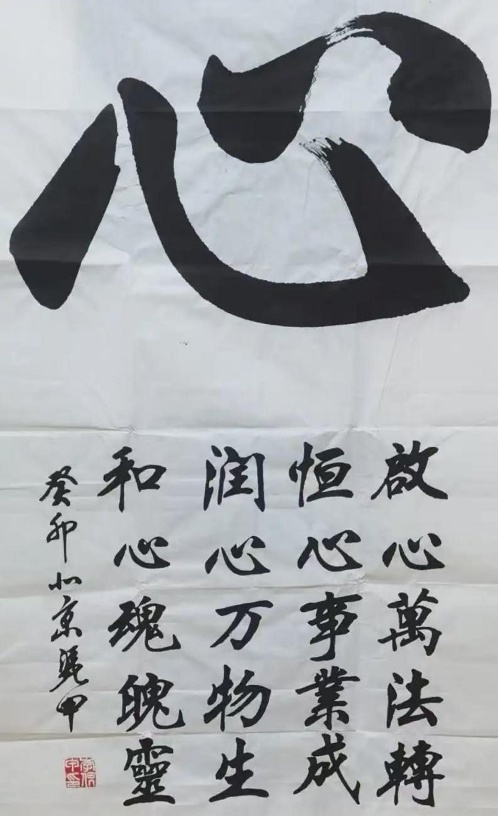 心
啟心萬法轉
恒心事業成
润心万物生
和心魂魄靈
癸卯北京晓甲